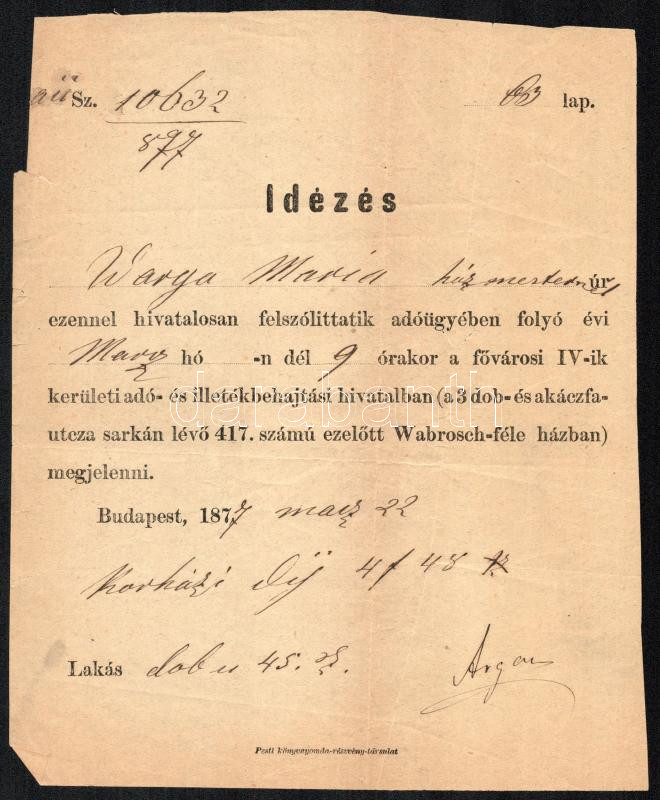 Sz. 10632 63 lap.
877
Idézés
Warga Maria házmesternél úr
ezennel hivatalosan felszólittatik adóügyében folyó évi
Marz hó -n dél 9 órakor a fővárosi IV-ik
kerületi adó- és illetékbehajtási hivatalban (a 3 dob- és akáczfa-
utcza sarkán lévő 417. számú ezelőtt Wabrosch-féle házban)
megjelenni.
Budapest, 1877 marz 22
Korházi Díj 4 f 48
Lakás dob u 45. sz.
Pesti könyvnyomda-részvény-társulat
darabanth